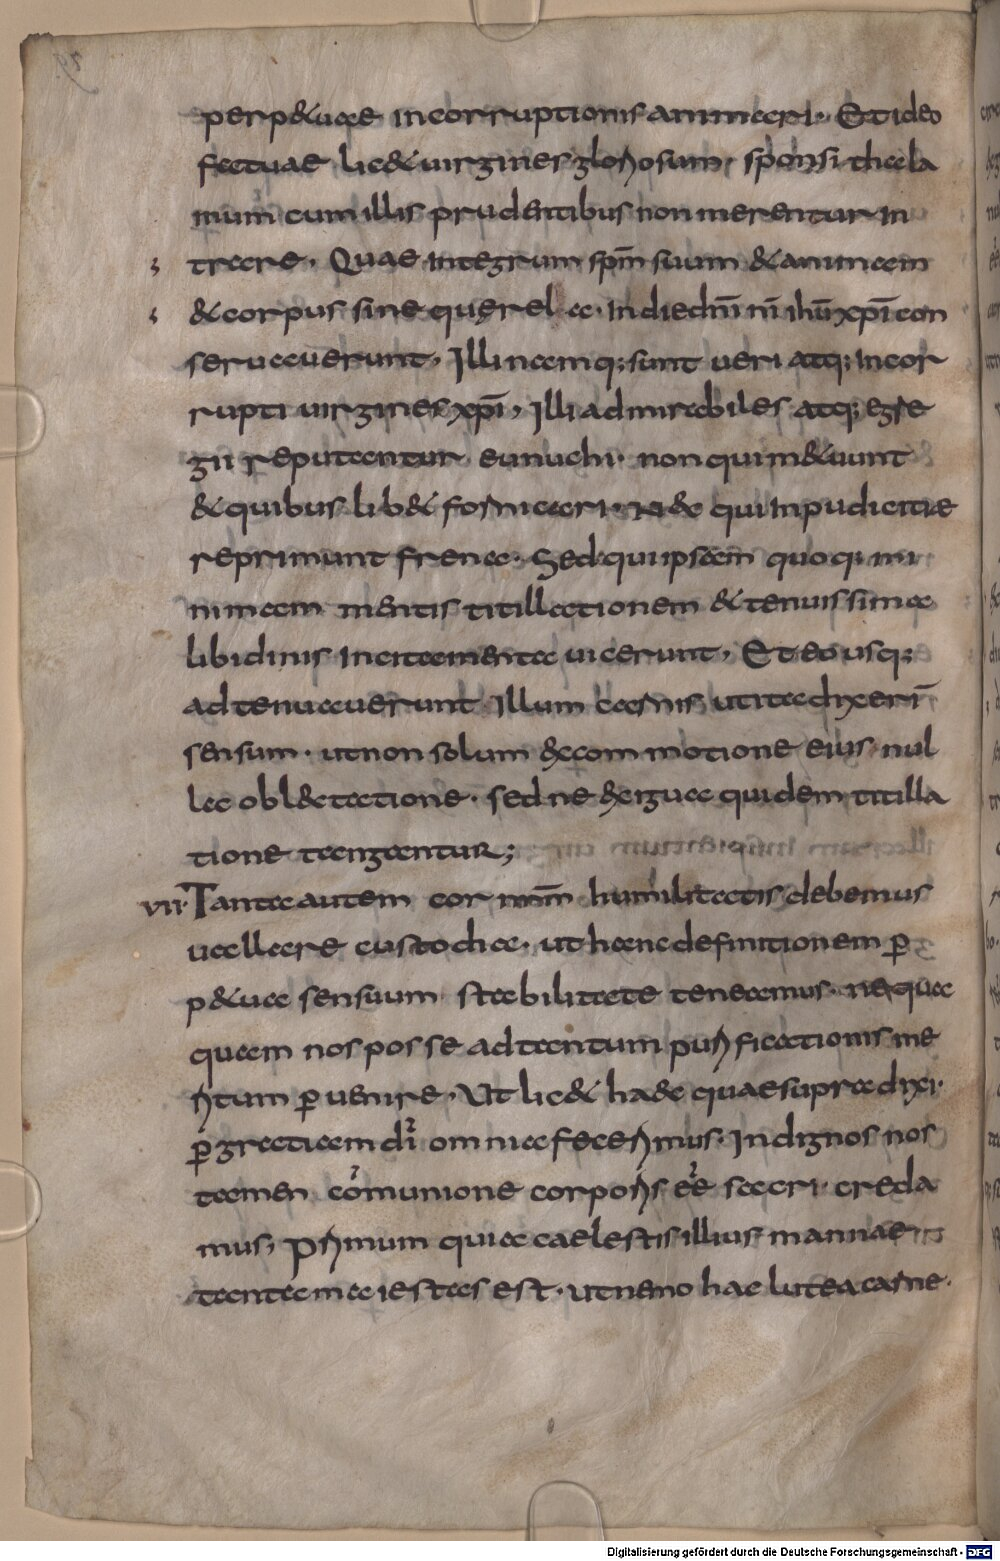 perp&uae incorruptionis ammari. Et ideo
fatuae lic& uirgines gloriosum sponsi thala
mum cum illis prudentibus non merentur in
trare. Quae integrum spm̄ suum & animam
& corpus sine querela. in die dn̄i nr̄i ihū xp̄i con
seruauerunt. Illi namq; sunt ueri atq; incor
rupti uirgines xp̄i, illi admirabiles atq; egre
gii reputantur eunuchi. non qui m&uunt
& quibus lib& fornicari. N& qui inpudicitiae
reprimunt frena. Sed qui ipsam quoq; mi
nimam mentis titillationem & tenuissima
libidinis incitamenta uicerunt. Et eo usq;
adtenuauerunt illum carnis ut ita dixerī
sensum. ut non solum &x commotione eius nul
la obl&tatione. sed ne &xigua quidem titilla
tione tangantur;
VII. Tanta autem cor nr̄m humilitatis debemus
uallare custodia. ut hanc definitionem p̱
p&ua sensuum stabilitate teneamus. nequa
quam nos posse ad tantum purificationis me
ritum p̱uenire. Ut lic& haec quae supra dixi.
p̱ gratiam dī omnia fecerimus. Indignos nos
tamen cōmunione corporis eē sacri creda
mus, Primum quia caelestis illius mannae
tanta maiestas est. ut nemo hac lutea carne.
Digitalisierung gefördert durch die Deutsche Forschungsgemeinschaft - DFG